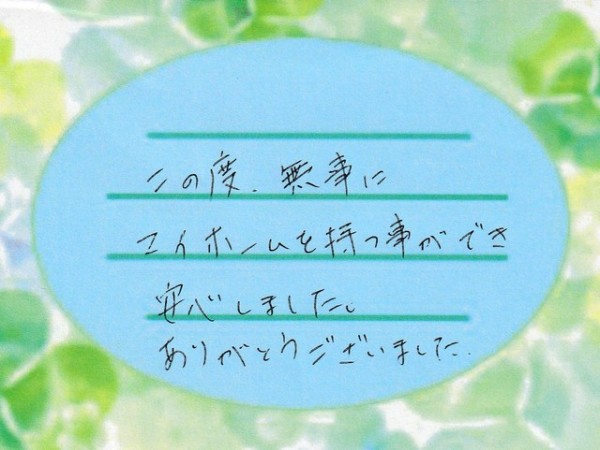 この度、無事に
マイホームを持つ事ができ
安心しました。
ありがとうございました.